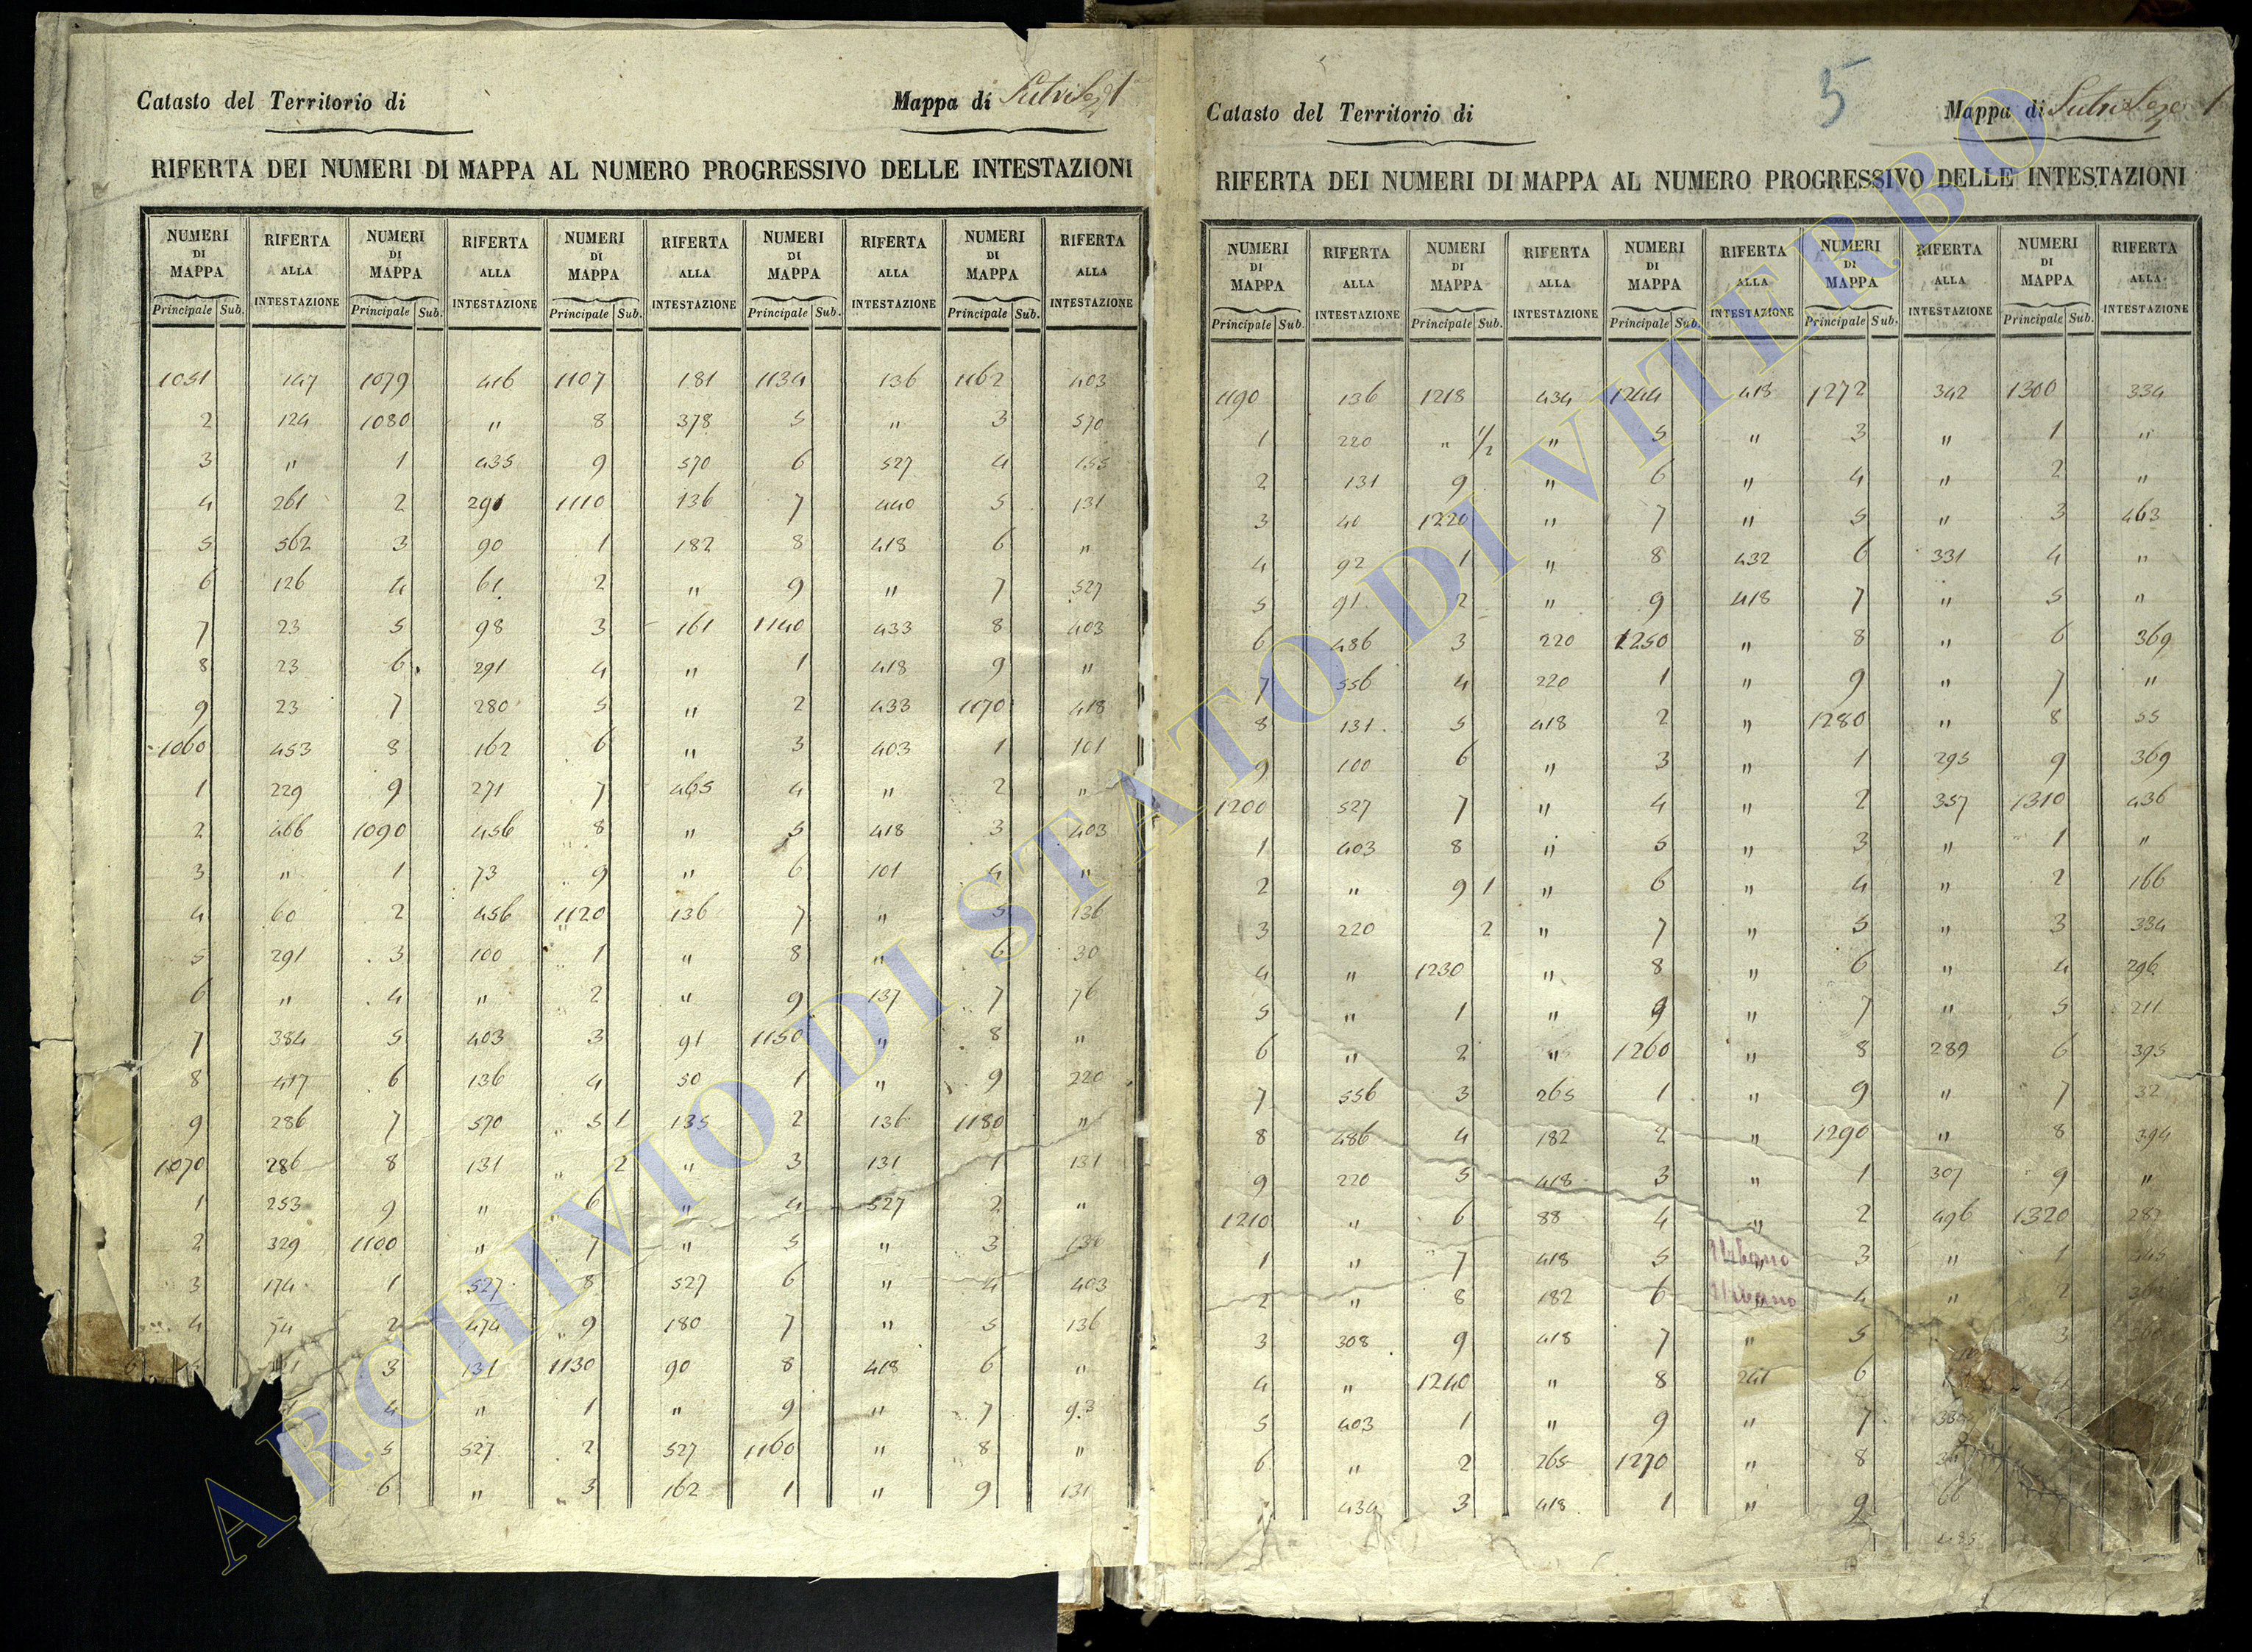 Catasto del Territorio di
Mappa di Sutri Sez. 1
RIFERTA DEI NUMERI DI MAPPA AL NUMERO PROGRESSIVO DELLE INTESTAZIONI
NUMERI DI MAPPA RIFERTA ALLA INTESTAZIONE NUMERI DI MAPPA RIFERTA ALLA INTESTAZIONE NUMERI DI MAPPA RIFERTA ALLA INTESTAZIONE NUMERI DI MAPPA RIFERTA ALLA INTESTAZIONE NUMERI DI MAPPA RIFERTA ALLA INTESTAZIONE
Principale Sub. Principale Sub. Principale Sub. Principale Sub. Principale Sub.
1051 147 1079 416 1107 181 1134 136 1162 403
2 124 1080 " 8 378 5 " 3 570
3 " 1 435 9 570 6 527 4 155
4 261 2 291 1110 136 7 440 5 131
5 562 3 90 1 182 8 418 6 "
6 126 4 61 2 " 9 " 7 527
7 23 5 98 3 161 1140 433 8 403
8 23 6 291 4 " 1 418 9 "
9 23 7 280 5 " 2 433 1170 418
1060 453 8 162 6 " 3 403 1 101
1 229 9 271 7 465 4 " 2 "
2 466 1090 456 8 " 5 418 3 403
3 " 1 73 9 " 6 101 4 "
4 60 2 456 1120 136 7 " 5 136
5 291 3 100 1 " 8 " 6 30
6 " 4 " 2 " 9 137 7 76
7 384 5 403 3 91 1150 " 8 "
8 417 6 136 4 50 1 " 9 220
9 286 7 570 5 1 135 2 136 1180 "
1070 286 8 131 2 " 3 131 1 131
1 253 9 " 6 " 4 527 2 "
2 329 1100 " 7 " 5 " 3 136
3 174 1 527 8 527 6 " 4 403
4 54 2 474 9 180 7 " 5 136
3 131 1130 90 8 418 6 "
4 " 1 " 9 " 7 93
5 527 2 527 1160 " 8 "
6 " 3 162 1 " 9 131
5
Catasto del Territorio di
Mappa di Sutri Seze 1
RIFERTA DEI NUMERI DI MAPPA AL NUMERO PROGRESSIVO DELLE INTESTAZIONI
NUMERI DI MAPPA RIFERTA ALLA INTESTAZIONE NUMERI DI MAPPA RIFERTA ALLA INTESTAZIONE NUMERI DI MAPPA RIFERTA ALLA INTESTAZIONE NUMERI DI MAPPA RIFERTA ALLA INTESTAZIONE NUMERI DI MAPPA RIFERTA ALLA INTESTAZIONE
Principale Sub. Principale Sub. Principale Sub. Principale Sub. Principale Sub.
1190 136 1218 434 1244 418 1272 342 1300 334
1 220 " 1/2 " 5 " 3 " 1 "
2 131 9 " 6 " 4 " 2 "
3 40 1220 " 7 " 5 " 3 463
4 92 1 " 8 432 6 331 4 "
5 91 2 " 9 418 7 " 5 "
6 486 3 220 1250 " 8 " 6 369
7 556 4 220 1 " 9 " 7 "
8 131 5 418 2 " 1280 " 8 55
9 100 6 " 3 " 1 295 9 369
1200 527 7 " 4 " 2 357 1310 436
1 403 8 " 5 " 3 " 1 "
2 " 9 1 " 6 " 4 " 2 166
3 220 2 " 7 " 5 " 3 334
4 " 1230 " 8 " 6 " 4 296
5 " 1 " 9 " 7 " 5 211
6 " 2 " 1260 " 8 289 6 395
7 556 3 265 1 " 9 " 7 32
8 486 4 182 2 " 1290 " 8 394
9 220 5 418 3 " 1 307 9 "
1210 " 6 88 4 " 2 496 1320
1 " 7 418 5 Urbano 3 " 1
2 " 8 182 6 Urbano 4 " 2
3 308 9 418 7 " 5 3
4 " 1240 " 8 241 6
5 403 1 " 9 " 7
6 " 2 265 1270 " 8
434 3 418 1 " 9 66
ARCHIVIO DI STATO DI VITERBO